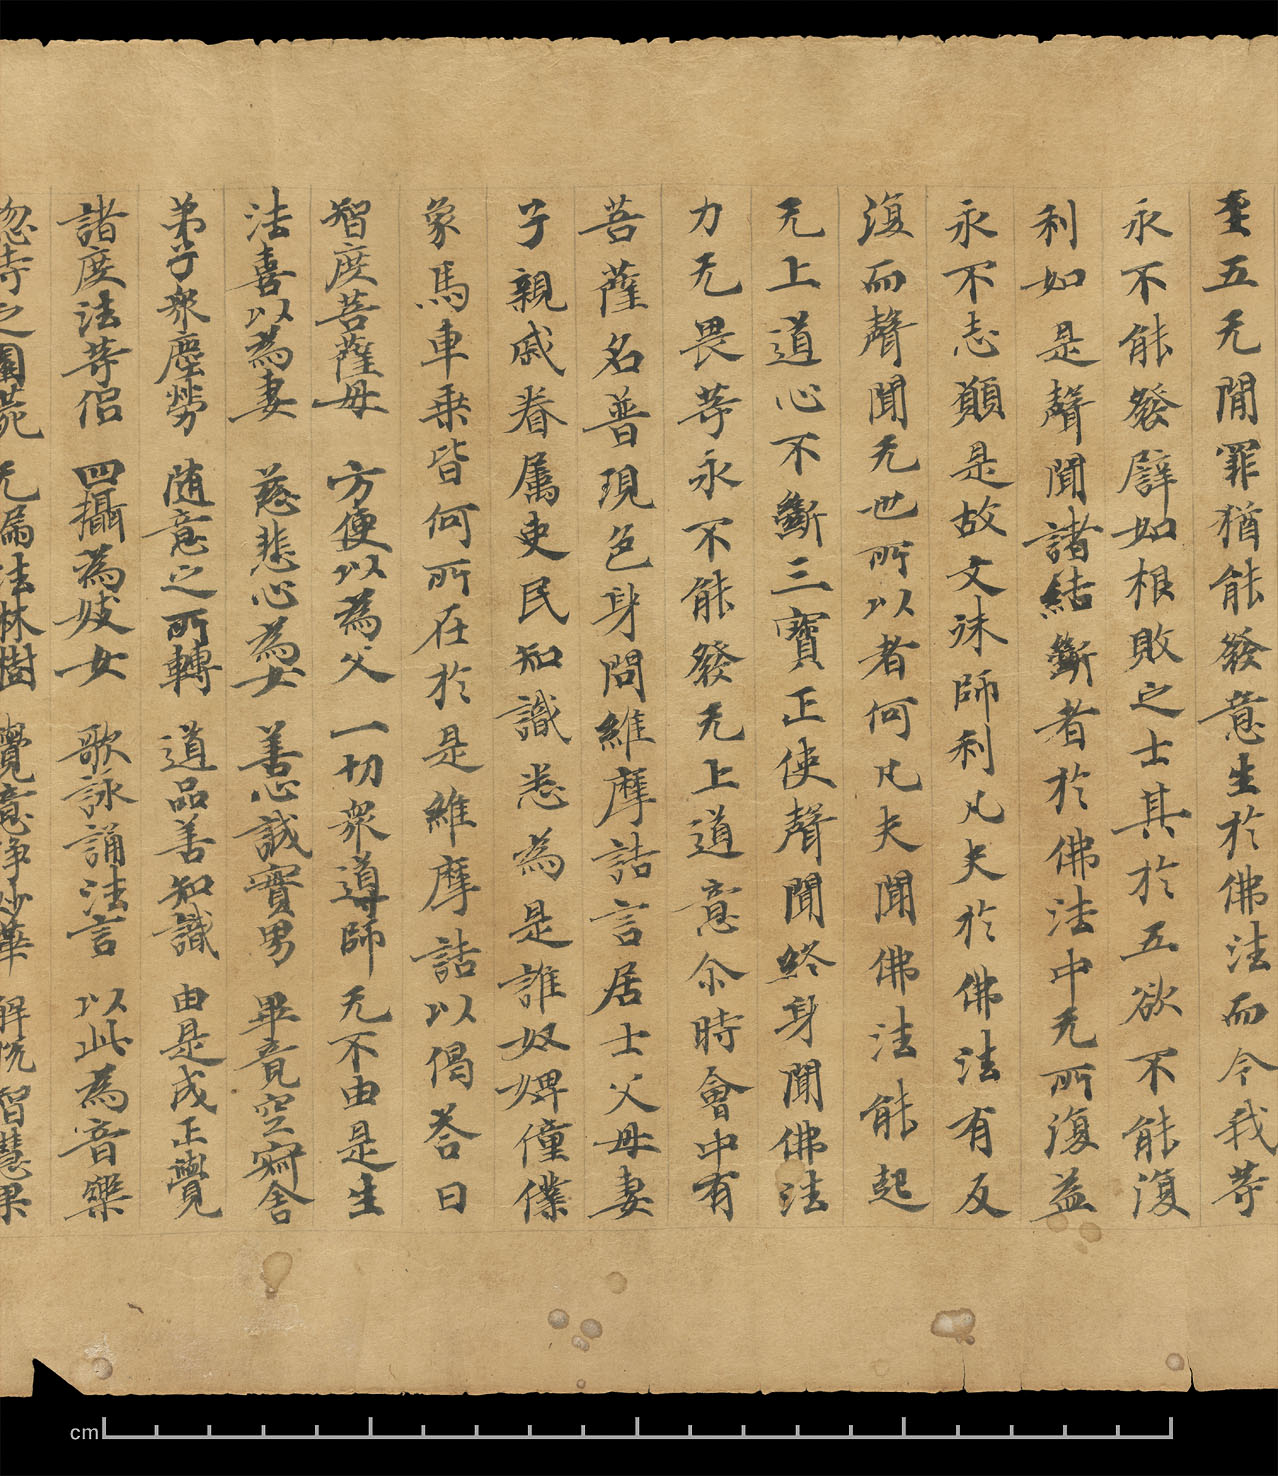 至五无閒罪猶能發意生於佛法而今我等
永不能發譬如根敗之士其於五欲不能復
利如是聲聞諸結斷者於佛法中无所復益
永不志願是故文殊師利凡夫於佛法有反
復而聲聞无也所以者何凡夫聞佛法能起
无上道心不斷三寶正使聲聞終身聞佛法
力无畏等永不能發无上道意尒時會中有
菩薩名普現色身問維摩詰言居士父母妻
子親戚眷屬吏民知識悉為是誰奴婢僮僕
象馬車乗皆何所在於是維摩詰以偈荅曰
智度菩薩母 方便以為父 一切眾導師 无不由是生
法喜以為妻 慈悲心為女 善心誠實男 畢竟空寂舍
弟子衆塵勞 随意之所轉 道品善知識 由是成正覺
諸度法等侶 四攝為妓女 歌詠誦法言 以此為音樂
惣持之園苑 无漏法林樹 覺意淨妙華 解脫智慧果
cm